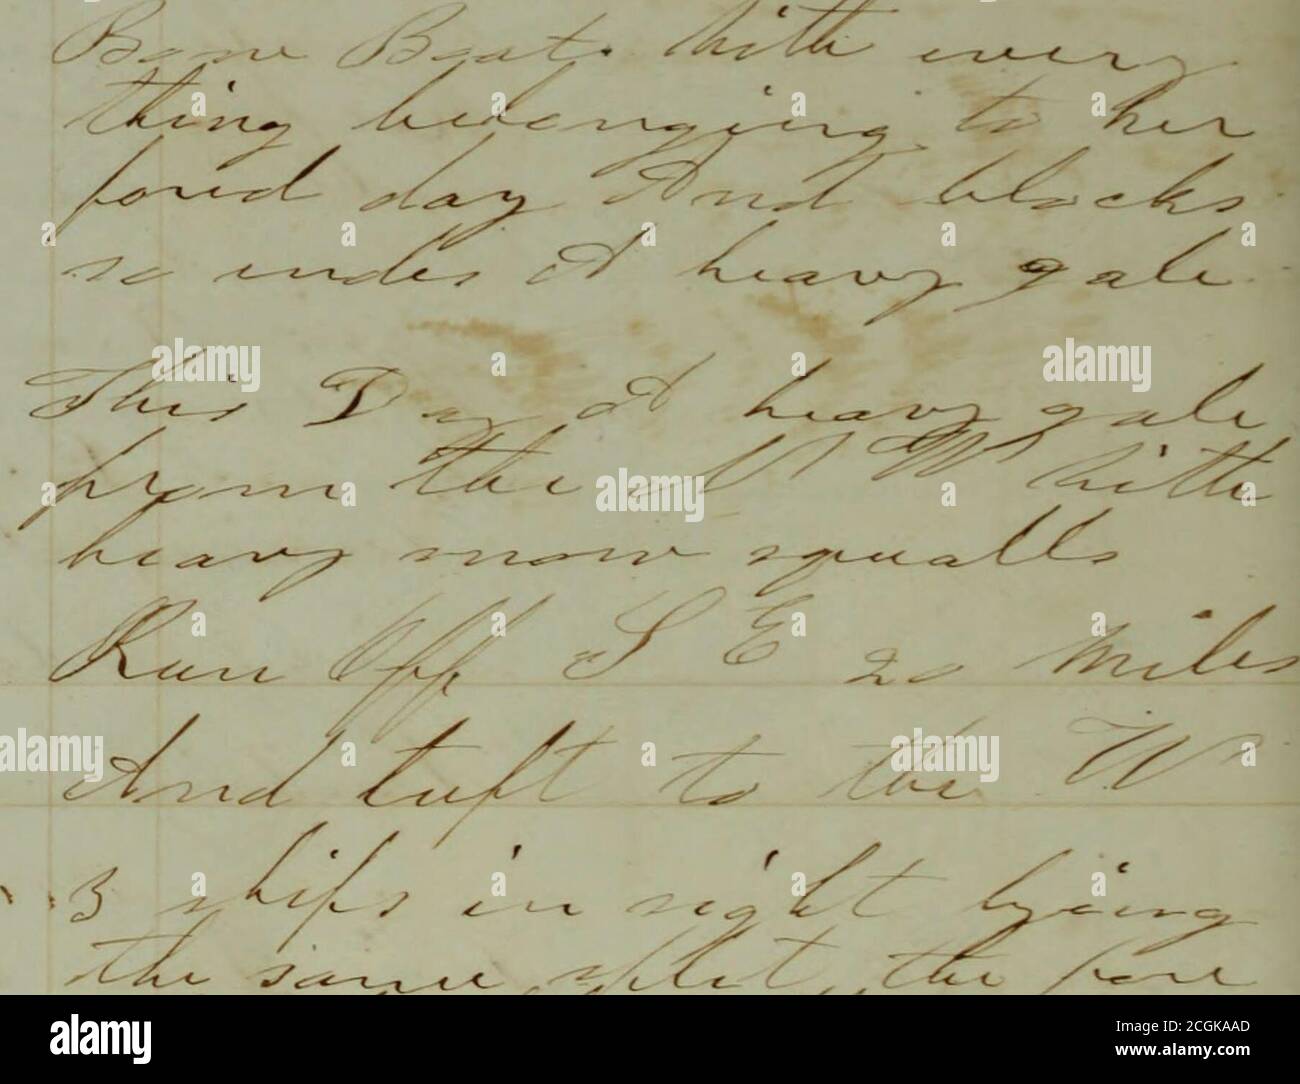 Bow Boat. With every
thing belonging to her
fored day And blocks
so endes A heavy gale
This Day A heavy gale
from the N W With
heavy snow squalls
Run Off S E 20 Miles
And luft to the W
3 ships in sight lying
the same split the fore
alamy
Image ID: 2CGKAAD
www.alamy.com